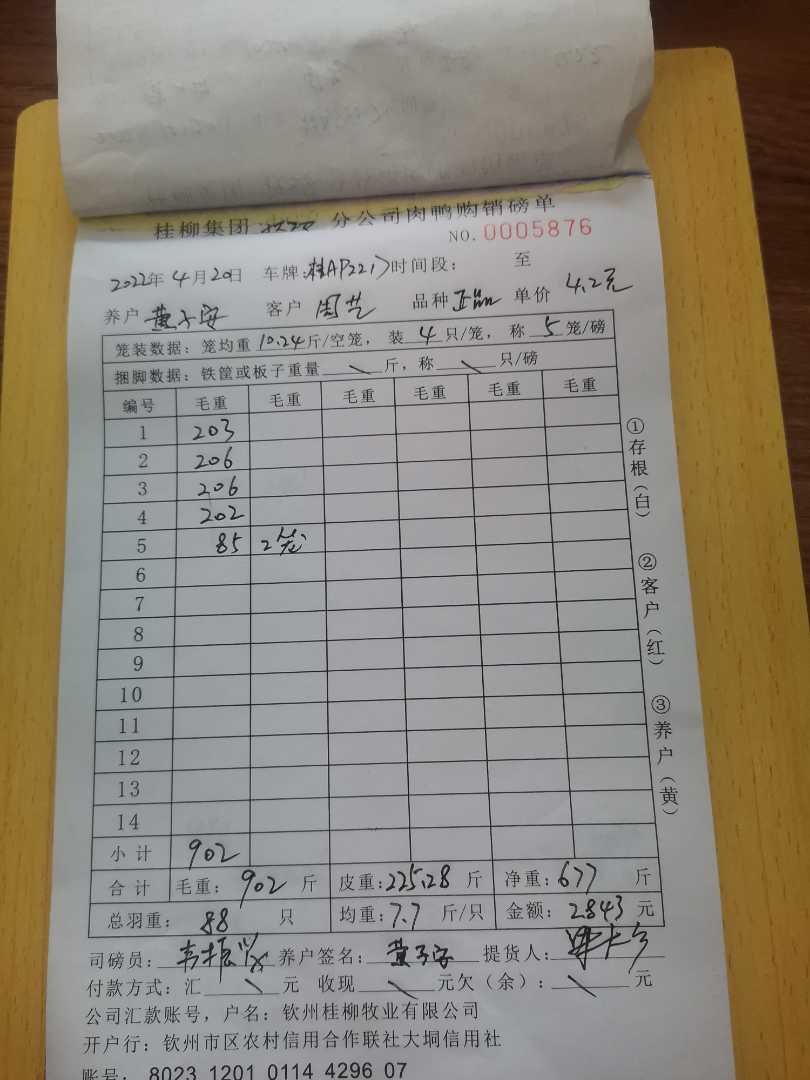 桂柳集团 分公司肉鸭购销磅单
NO. 0005876
2022年 4月20日 车牌: 桂AP221 时间段: 至
养户 黄子安 客户 周艺 品种 正品 单价 4.2元
笼装数据: 笼均重 10.24 斤/空笼, 装 4 只/笼, 称 5 笼/磅
捆脚数据: 铁筐或板子重量 \ 斤, 称 \ 只/磅
编号 毛重 毛重 毛重 毛重 毛重 毛重
1 203
2 206
3 206
4 202
5 85 2笼
6
7
8
9
10
11
12
13
14
小计 902
合计 毛重: 902 斤 皮重: 225.28 斤 净重: 677 斤
总羽重: 88 只 均重: 7.7 斤/只 金额: 2843 元
司磅员: 韦振兴 养户签名: 黄子安 提货人:
付款方式: 汇 \ 元 收现 \ 元欠(余): \ 元
公司汇款账号, 户名: 钦州桂柳牧业有限公司
开户行: 钦州市区农村信用合作联社大垌信用社
账号: 8023 1201 0114 4296 07
①存根(白)
②客户(红)
③养户(黄)